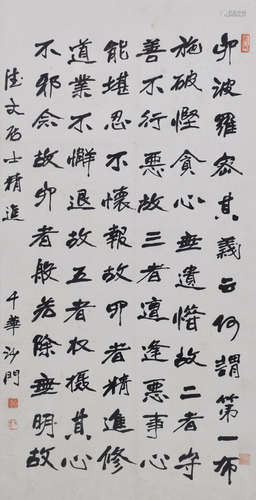 卯波羅密其義云何謂第一布
施破慳貪心無遺惜故二者守
善不行惡故三者遭逢惡事心
能堪忍不懷報故卯者精進修
道業不懈退故五者权攝其心
不邪念故卯者般若除無明故
德文居士精進
千華沙門